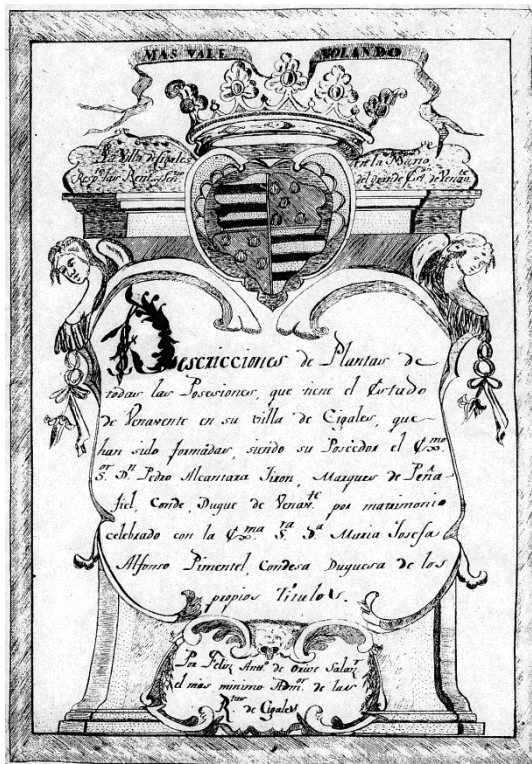 MAS VALE VOLANDO
La Villa de Cigales
en la Mano
del Grande
Descricciones de Plantas de
todas las Posesiones, que tiene el Estado
de Venavente en su villa de Cigales, que
han sido formadas, siendo su Posèdor el Exmo
Sor Dn Pedro Alcantara Jiron, Marques de Peña
fiel, Conde, Duque de Venante por matrimonio
celebrado con la Exma Sra Da Maria Josefa
Alfonso Pimentel, Condesa Duquesa de los
propios Titulos.
Por Feliz Anto de Orive Salazr
el mas minimo Admor de las
Rtas de Cigales